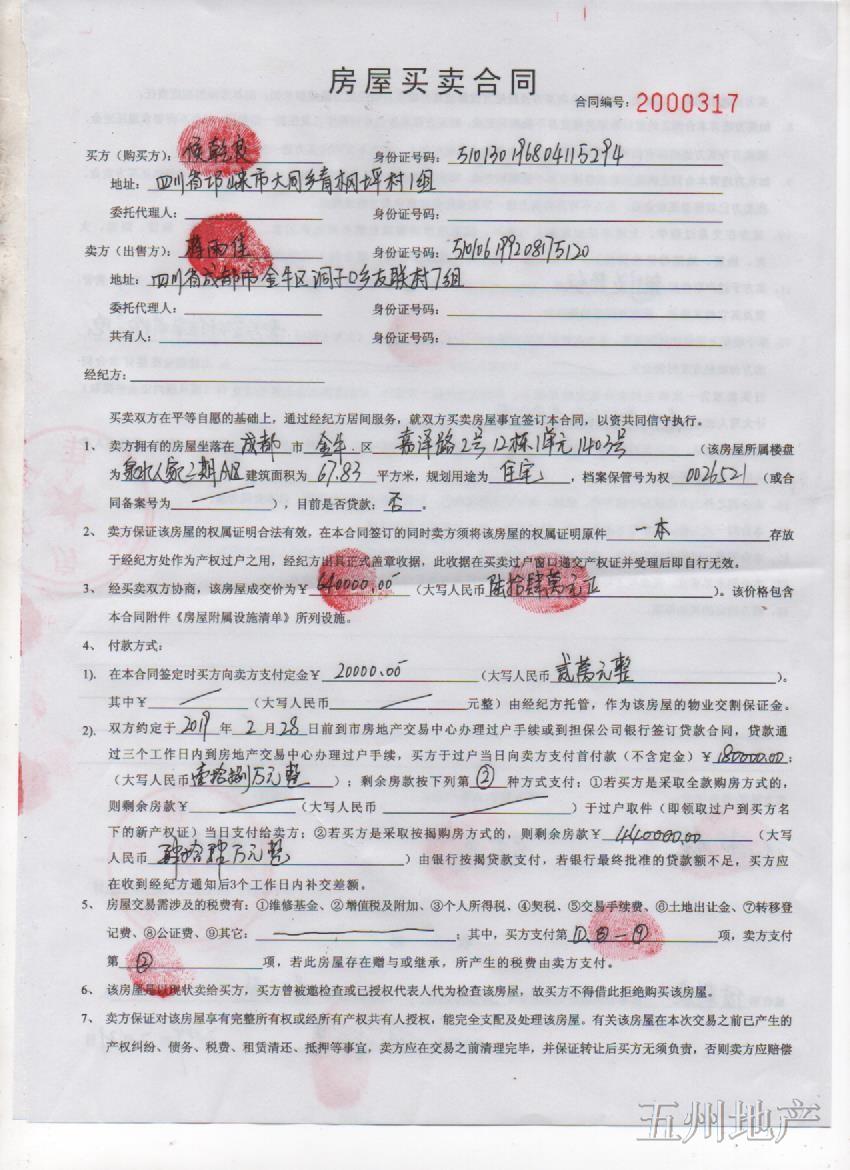 房屋买卖合同
合同编号：2000317
买方（购买方）：侯乾良 身份证号码：510130196804115294
地址：四川省邛崃市大同乡青桐坪村1组
委托代理人： 身份证号码：
卖方（出售方）：蒋雨佳 身份证号码：510106199208175120
地址：四川省成都市金牛区洞子口乡友联村7组
委托代理人： 身份证号码：
共有人： 身份证号码：
经纪方：
买卖双方在平等自愿的基础上，通过经纪方居间服务，就双方买卖房屋事宜签订本合同，以资共同信守执行。
1、卖方拥有的房屋坐落在 成都 市 金牛 区 嘉泽路2号12栋1单元1403号（该房屋所属楼盘
为 泉水人家三期A区 建筑面积为 67.83 平方米，规划用途为 住宅，档案保管号为权 0026521（或合
同备案号为 ），目前是否贷款：否。
2、卖方保证该房屋的权属证明合法有效，在本合同签订的同时卖方须将该房屋的权属证明原件 一本 存放
于经纪方处作为产权过户之用，经纪方出具正式盖章收据，此收据在买卖过户窗口递交产权证并受理后即自行无效。
3、经买卖双方协商，该房屋成交价为￥640000.00（大写人民币 陆拾肆萬元正）。该价格包含
本合同附件《房屋附属设施清单》所列设施。
4、付款方式：
1).在本合同签定时买方向卖方支付定金￥20000.00（大写人民币 贰萬元整）。
其中￥ （大写人民币 元整）由经纪方托管，作为该房屋的物业交割保证金。
2).双方约定于 2019 年 2 月 28 日前到市房地产交易中心办理过户手续或到担保公司银行签订贷款合同，贷款通
过三个工作日内到房地产交易中心办理过户手续，买方于过户当日向卖方支付首付款（不含定金）￥180000.00；
（大写人民币 壹拾捌万元整）；剩余房款按下列第 ② 种方式支付：①若买方是采取全款购房方式的，
则剩余房款￥ （大写人民币 ）于过户取件（即领取过户到买方名
下的新产权证）当日支付给卖方；②若买方是采取按揭购房方式的，则剩余房款￥440000.00（大写
人民币 肆拾肆万元整）由银行按揭贷款支付，若银行最终批准的贷款额不足，买方应
在收到经纪方通知后3个工作日内补交差额。
5、房屋交易需涉及的税费有：①维修基金、②增值税及附加、③个人所得税、④契税、⑤交易手续费、⑥土地出让金、⑦转移登
记费、⑧公证费、⑨其它： ；其中，买方支付第 ①.③—⑨ 项，卖方支付
第 ② 项，若此房屋存在赠与或继承，所产生的税费由卖方支付。
6、该房屋是以现状卖给买方，买方曾被邀检查或已授权代表人代为检查该房屋，故买方不得借此拒绝购买该房屋。
7、卖方保证对该房屋享有完整所有权或经所有产权共有人授权，能完全支配及处理该房屋。有关该房屋在本次交易之前已产生的
产权纠纷、债务、税费、租赁清还、抵押等事宜，卖方应在交易之前清理完毕，并保证转让后买方无须负责，否则卖方应赔偿
五州地产